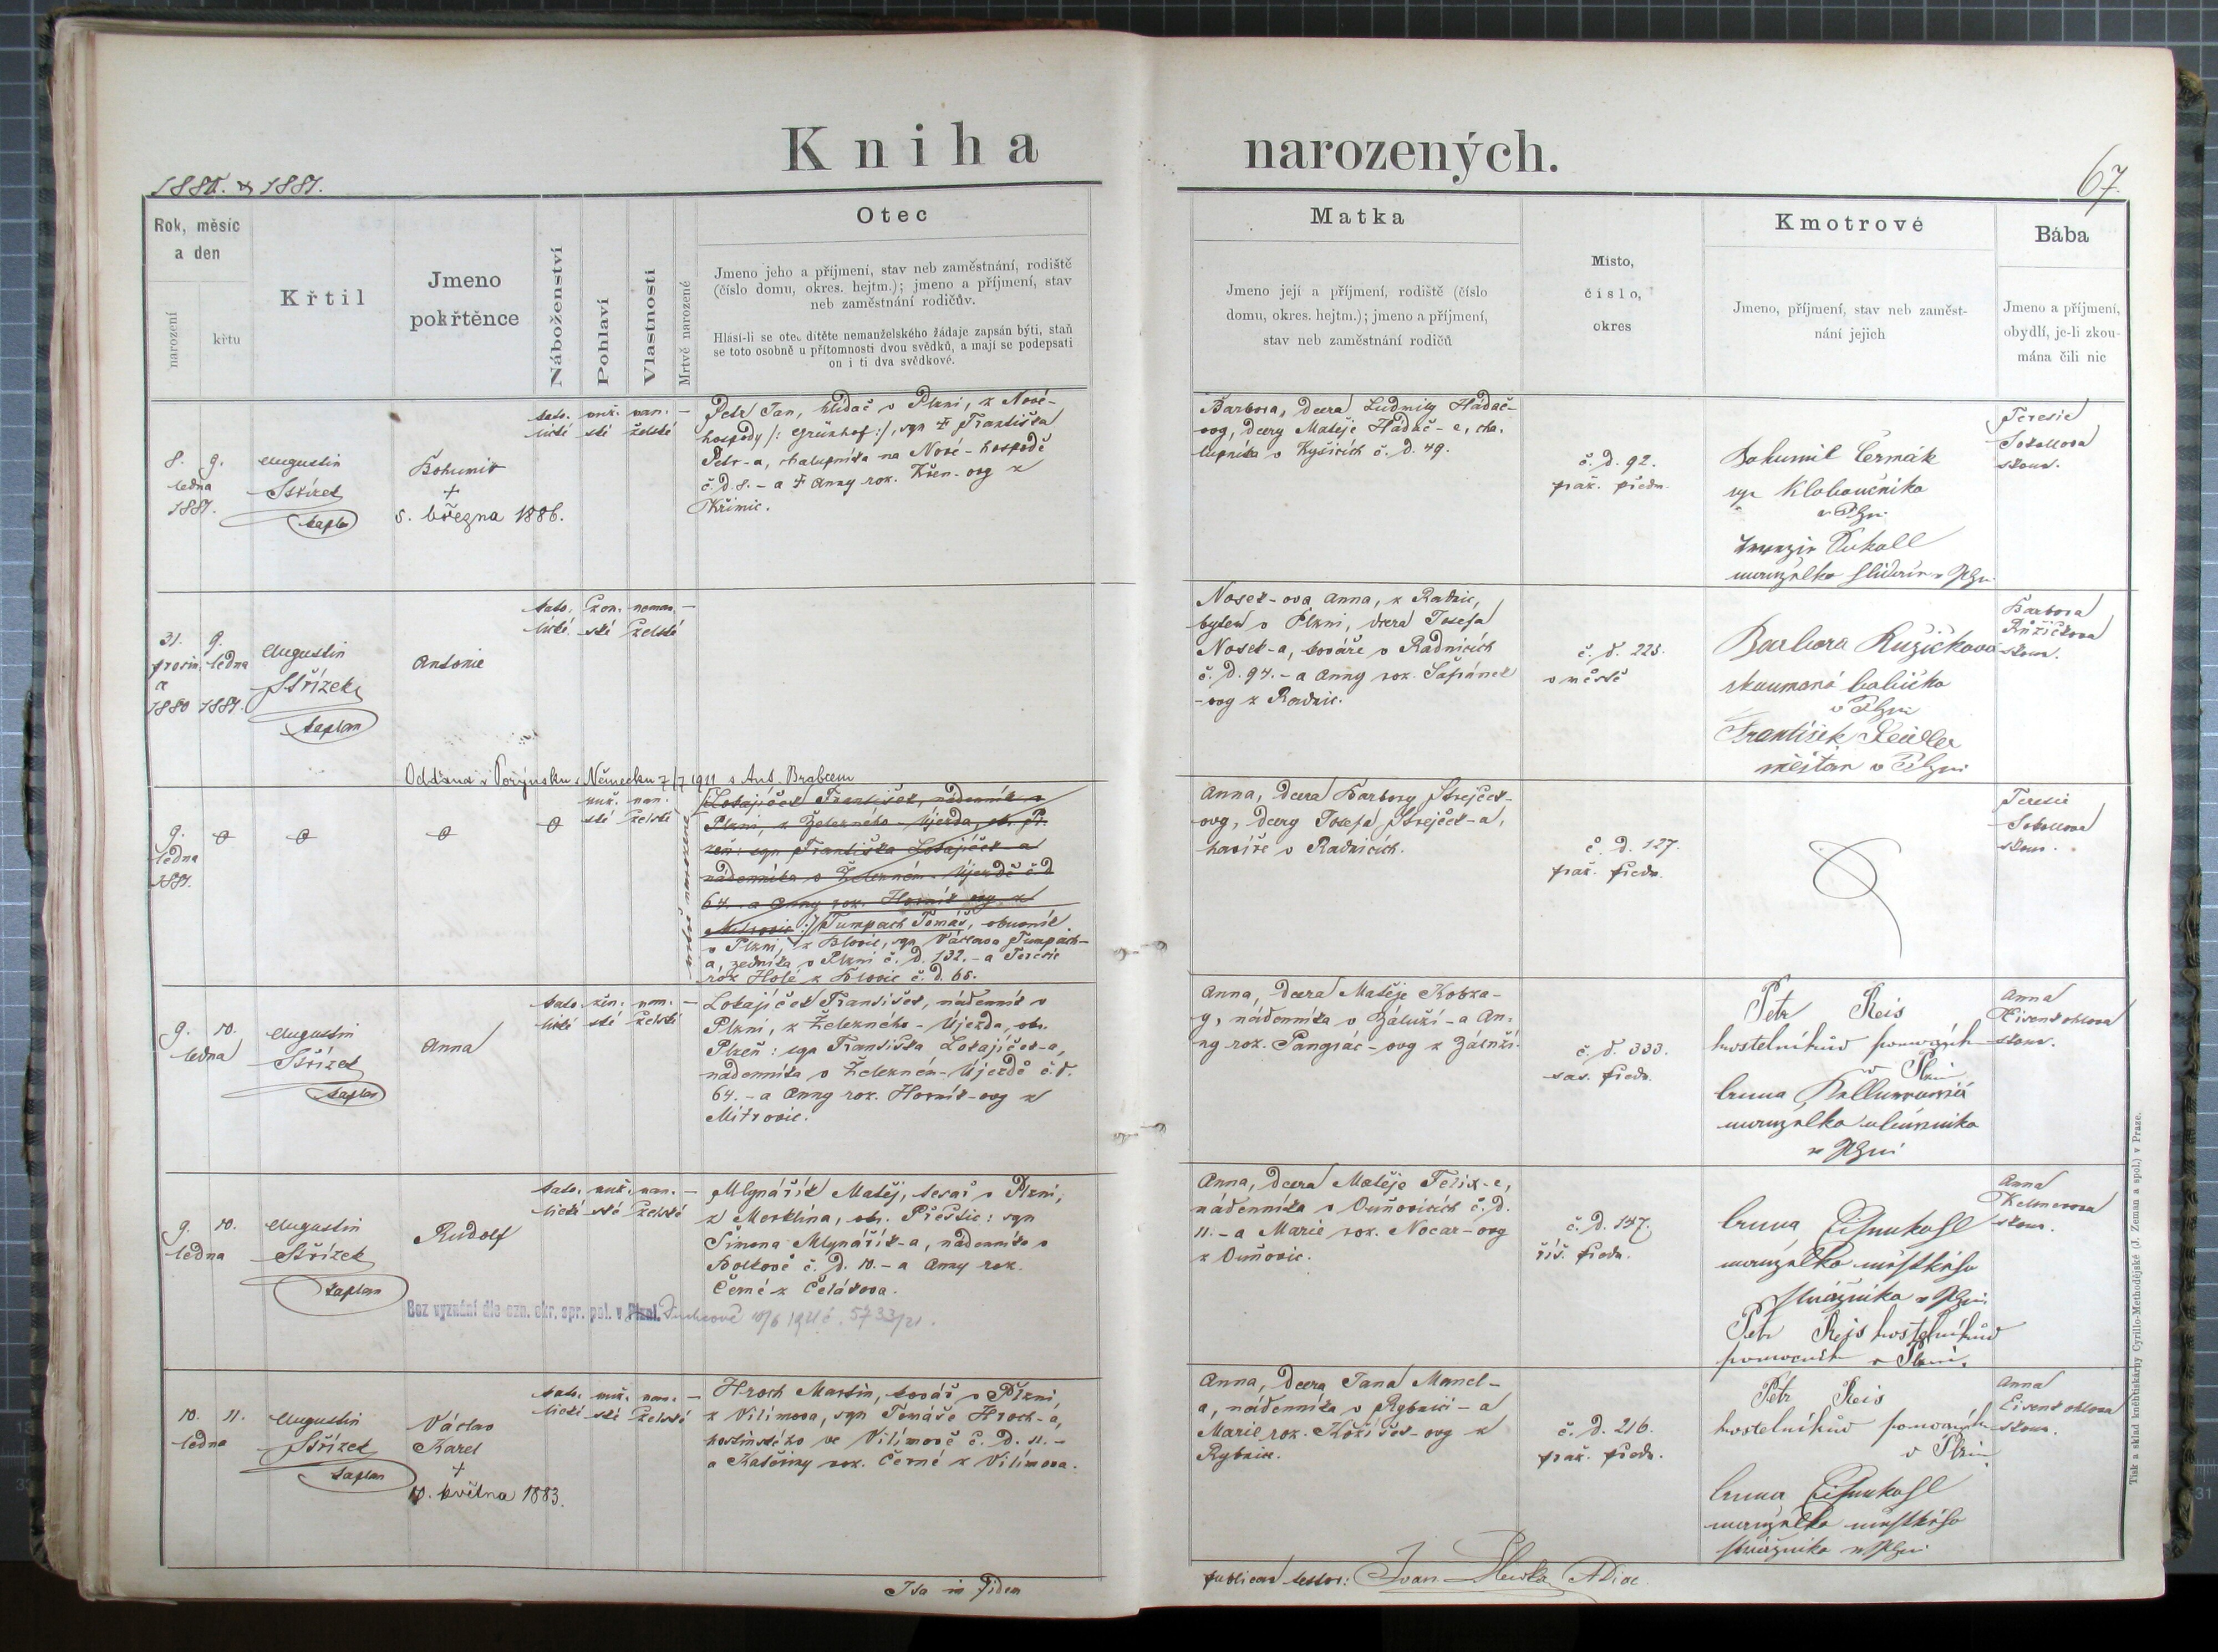 Kniha narozených.
1880. & 1881.
67.
Rok, měsíc
a den
narození
křtu
Křtil
Jmeno
pokřtěnce
Náboženství
Pohlaví
Vlastnosti
Mrtvě narozené
Otec
Jmeno jeho a příjmení, stav neb zaměstnání, rodiště
(číslo domu, okres. hejtm.); jmeno a příjmení, stav
neb zaměstnání rodičův.
Hlásí-li se otec dítěte nemanželského žádaje zapsán býti, staň
se toto osobně u přítomnosti dvou svědků, a mají se podepsati
on i ti dva svědkové.
Matka
Jmeno její a příjmení, rodiště (číslo
domu, okres. hejtm.); jmeno a příjmení,
stav neb zaměstnání rodičů
Místo,
číslo,
okres
Kmotrové
Jmeno, příjmení, stav neb zaměst-
nání jejich
Bába
Jmeno a příjmení,
obydlí, je-li zkou-
mána čili nic
8. 9.
ledna
1881.
Augustin
Střízek
kaplan
Bohumir
+
5. března 1886.
kato- muž. man. —
lické ské želské
Petr Jan, hlídač v Plzni, z Nové-
hospody /: Grünhof :/, syn † Františka
Petr-a, chalupníka na Nové-hospodě
č. d. 8. - a † Anny roz. Křen-ovy z
Křimic.
Barbora, dcera Ludmily Hádač-
ovy, dcery Matěje Hádač-e, cha-
lupníka v Kyšicích č. d. 49.
č. d. 92.
praž. předm.
Bohumil Čermák
syn Kloboučníka
v Plzni
manželka
Teresie
Sokollova
zkou.
31. 9.
prosin. ledna
a
1880 1881.
Augustin
Střízek
kaplan
Antonie
kato- žen- neman- —
lické ské želské
Nosek-ova Anna, z Radnic,
bytem v Plzni, dcera Josefa
Nosek-a, kováře v Radnicích
č. d. 94. - a Anny roz. Šafránek
-ovy z Radnic.
č. d. 223.
v městě
Barbora Růžičková
zkoumaná babička
v Plzni
František Seidler
měšťan v Plzni
Barbora
Růžičkova
zkou.
Oddána v Porýnsku v Německu 7/7 1911 s Ant. Brabcem
9.
ledna
1881.
muž. man-
ské želské
mrtvě narozené
/:Lokajíček František, nádenník v
Plzni, z Železného-Újezda, ok. Pl-
zeň: syn Františka Lokajíček-a
nádenníka v Železném-Újezdě č. d
64. - a Anny roz. Horník-ovy z
Mitrovic:/ Tumpach Tomáš, obuvník
v Plzni, z Blovic, syn Václava Tumpach-
a, zedníka v Plzni č. d. 132. - a Teresie
roz Holé z Blovic č. d. 65.
Anna, dcera Barbory Strejček-
ovy, dcery Josefa Strejček-a,
havíře v Radnicích.
č. d. 127.
praž. předm.
Teresie
Sokollova
zkou.
9. 10.
ledna
Augustin
Střízek
kaplan
Anna
kato- žen- man- —
lické ské želské
Lokajíček František, nádenník v
Plzni, z Železného-Újezda, okr.
Plzeň: syn Františka Lokajíček-a,
nádenníka v Železném-Újezdě č. d.
64. - a Anny roz. Horník-ovy z
Mitrovic.
Anna, dcera Matěje Kobza-
y, nádenníka v Záluží - a An-
ny roz. Pangrác-ovy z Záluží.
č. d. 333.
sas. předm.
Petr Reis
kostelníkův pomocník
v Plzni
Anna
manželka
v Plzni
Anna
Eisenkohlova
zkou.
9. 10.
ledna
Augustin
Střízek
kaplan
Rudolf
kato- muž. man. —
lické ské želské
Mlynářík Matěj, tesař v Plzni,
z Merklína, okr. Přeštic: syn
Šimona Mlynářík-a, nádenníka v
Bolkově č. d. 10. - a Anny roz.
Černé z Čelákova.
Bez vyznání dle ozn. okr. spr. pol. v Plzni. Duchcově 10/6 1921 č. 5733/21.
Anna, dcera Matěje Felix-e,
nádenníka v Ouňovicích č. d.
11. - a Marie roz. Nocar-ovy
z Ouňovic.
č. d. 147.
říš. předm.
Anna Eisenkohl
manželka městského
strážníka v Plzni
Petr Rejs kostelníkův
pomocník v Plzni.
Anna
Kelnerova
zkou.
10. 11.
ledna
Augustin
Střízek
kaplan
Václav
Karel
+
10. května 1883.
kato- muž. man- —
lické ské želské
Hroch Martin, kovář v Plzni,
z Vilímova, syn Tomáše Hroch-a,
hostinského ve Vilímově č. d. 11. -
a Kateřiny roz. Černé z Vilímova.
Anna, dcera Jana Mancl-
a, nádenníka v Rybnici - a
Marie roz. Kožíšek-ovy z
Rybnice.
č. d. 216.
praž. předm.
Petr Reis
kostelníkův pomocník
v Plzni
Anna Eisenkohl
manželka městského
strážníka v Plzni
Anna
Eisenkohlova
zkou.
Ita in fidem
publicam testor:
Tisk a sklad knihtiskárny Cyrillo-Methodějské (J. Zeman a spol.) v Praze.